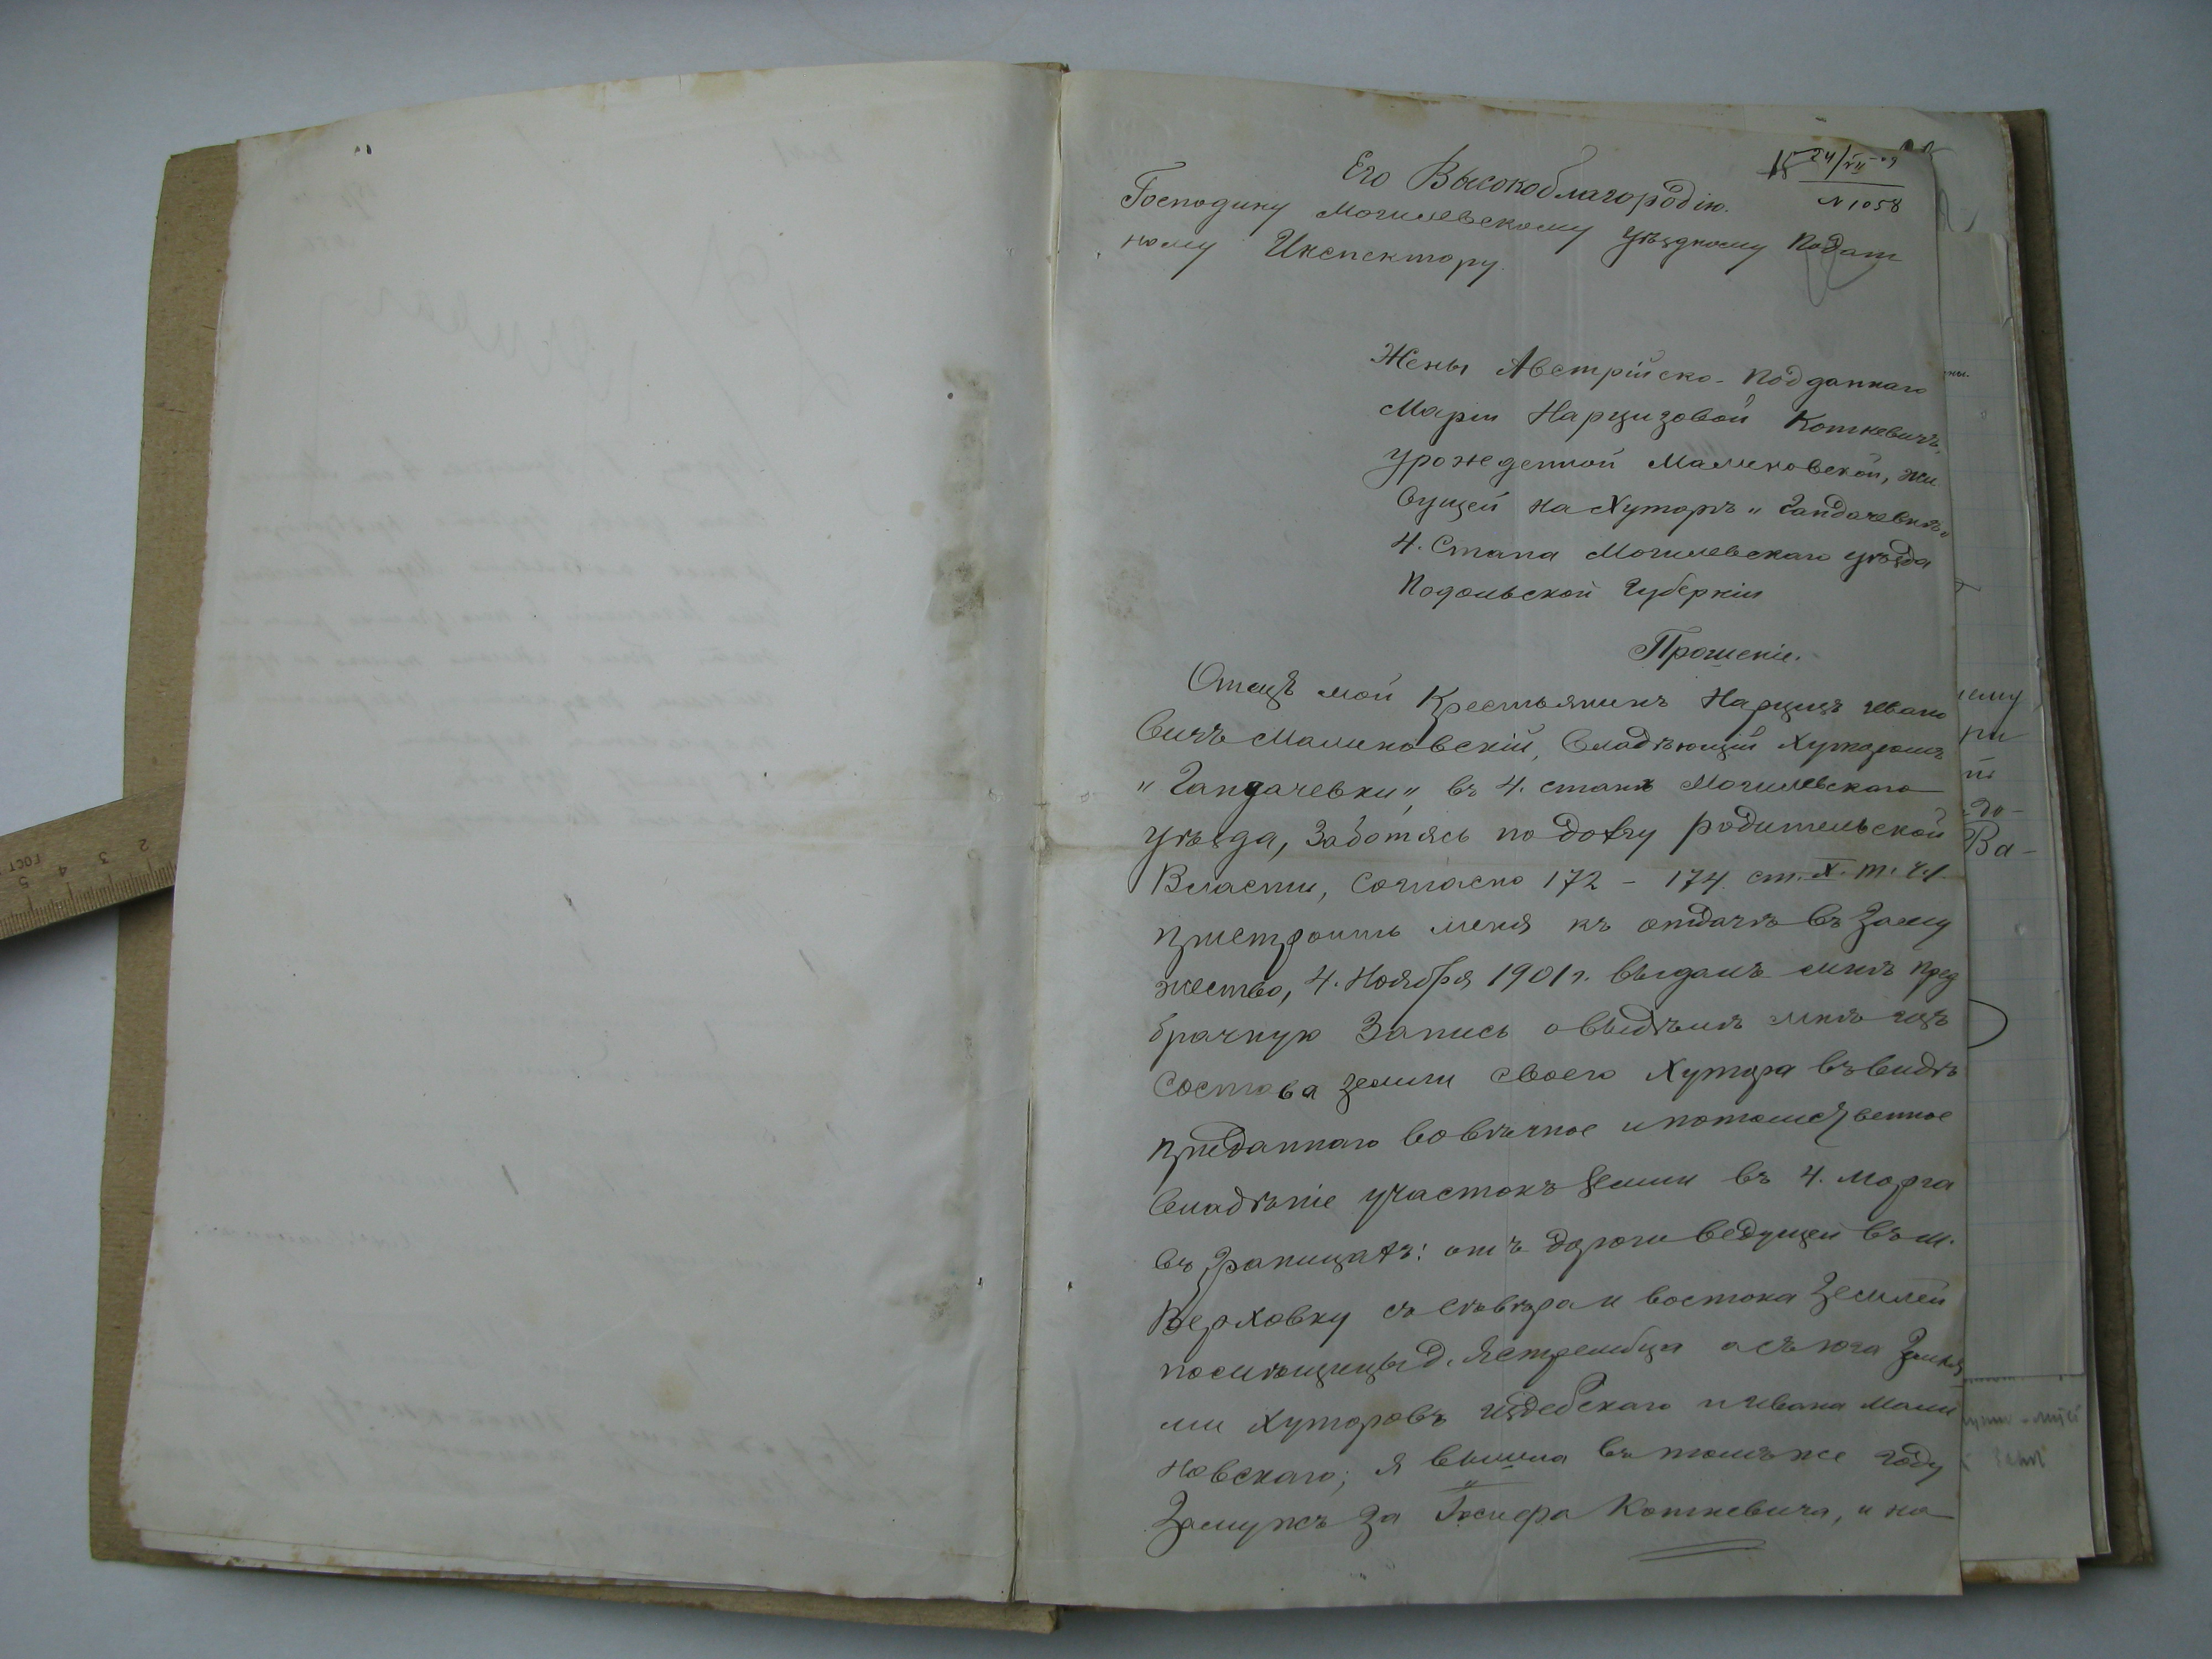 24/VII 09
N 1058
Его Высокоблагородію.
Господину Могилевскому Уѣздному Подат
ному Инспектору.
Жены Австрійско-Подданнаго
Маріи Нарцизовой Коткевичъ,
урожденной Малиновской, жи
вущей на Хуторѣ "Гандачевкѣ"
4. Стана Могилевскаго уѣзда
Подольской Губерніи
Прошеніе.
Отецъ мой Крестьянинъ Нарцизъ Ивано
вичъ Малиновскій, владѣющій Хуторомъ
"Гандачевки", въ 4. станѣ Могилевскаго
уѣзда, Заботясь по долгу родительской
Власти, Согласно 172 - 174 ст. X. т. ч.1.
пристроить меня къ отдачѣ въ Заму
жество, 4. Ноября 1901 г. выдалъ мнѣ пред
брачную Запись о выдѣлѣ мнѣ изъ
Состава земли своего Хутора въ видѣ
приданнаго во вѣчное и потомственное
владѣніе участокъ земли въ 4. морга
въ границахъ: отъ дороги ведущей въ м.
Верховку съ сѣвера и востока Землей
помѣщицы д. Ястрембца а съ юга Земля
ми Хуторовъ Издебскаго и Ивана Мали
новскаго; я вышла въ томъ же году
Замужъ за Іосифа Коткевича, и на
2
3
4
5
ГОСТ